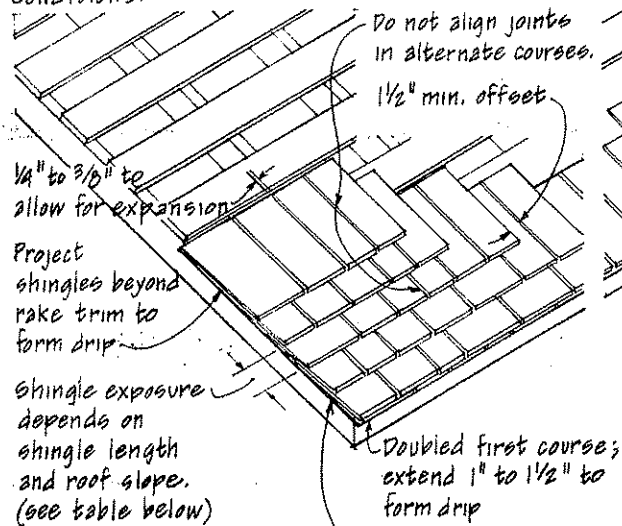 Do not align joints
in alternate courses.
1½" min. offset
¼" to ⅜" to
allow for expansion
Project
shingles beyond
rake trim to
form drip
Shingle exposure
depends on
shingle length
and roof slope.
(see table below)
Doubled first course;
extend 1" to 1½" to
form drip